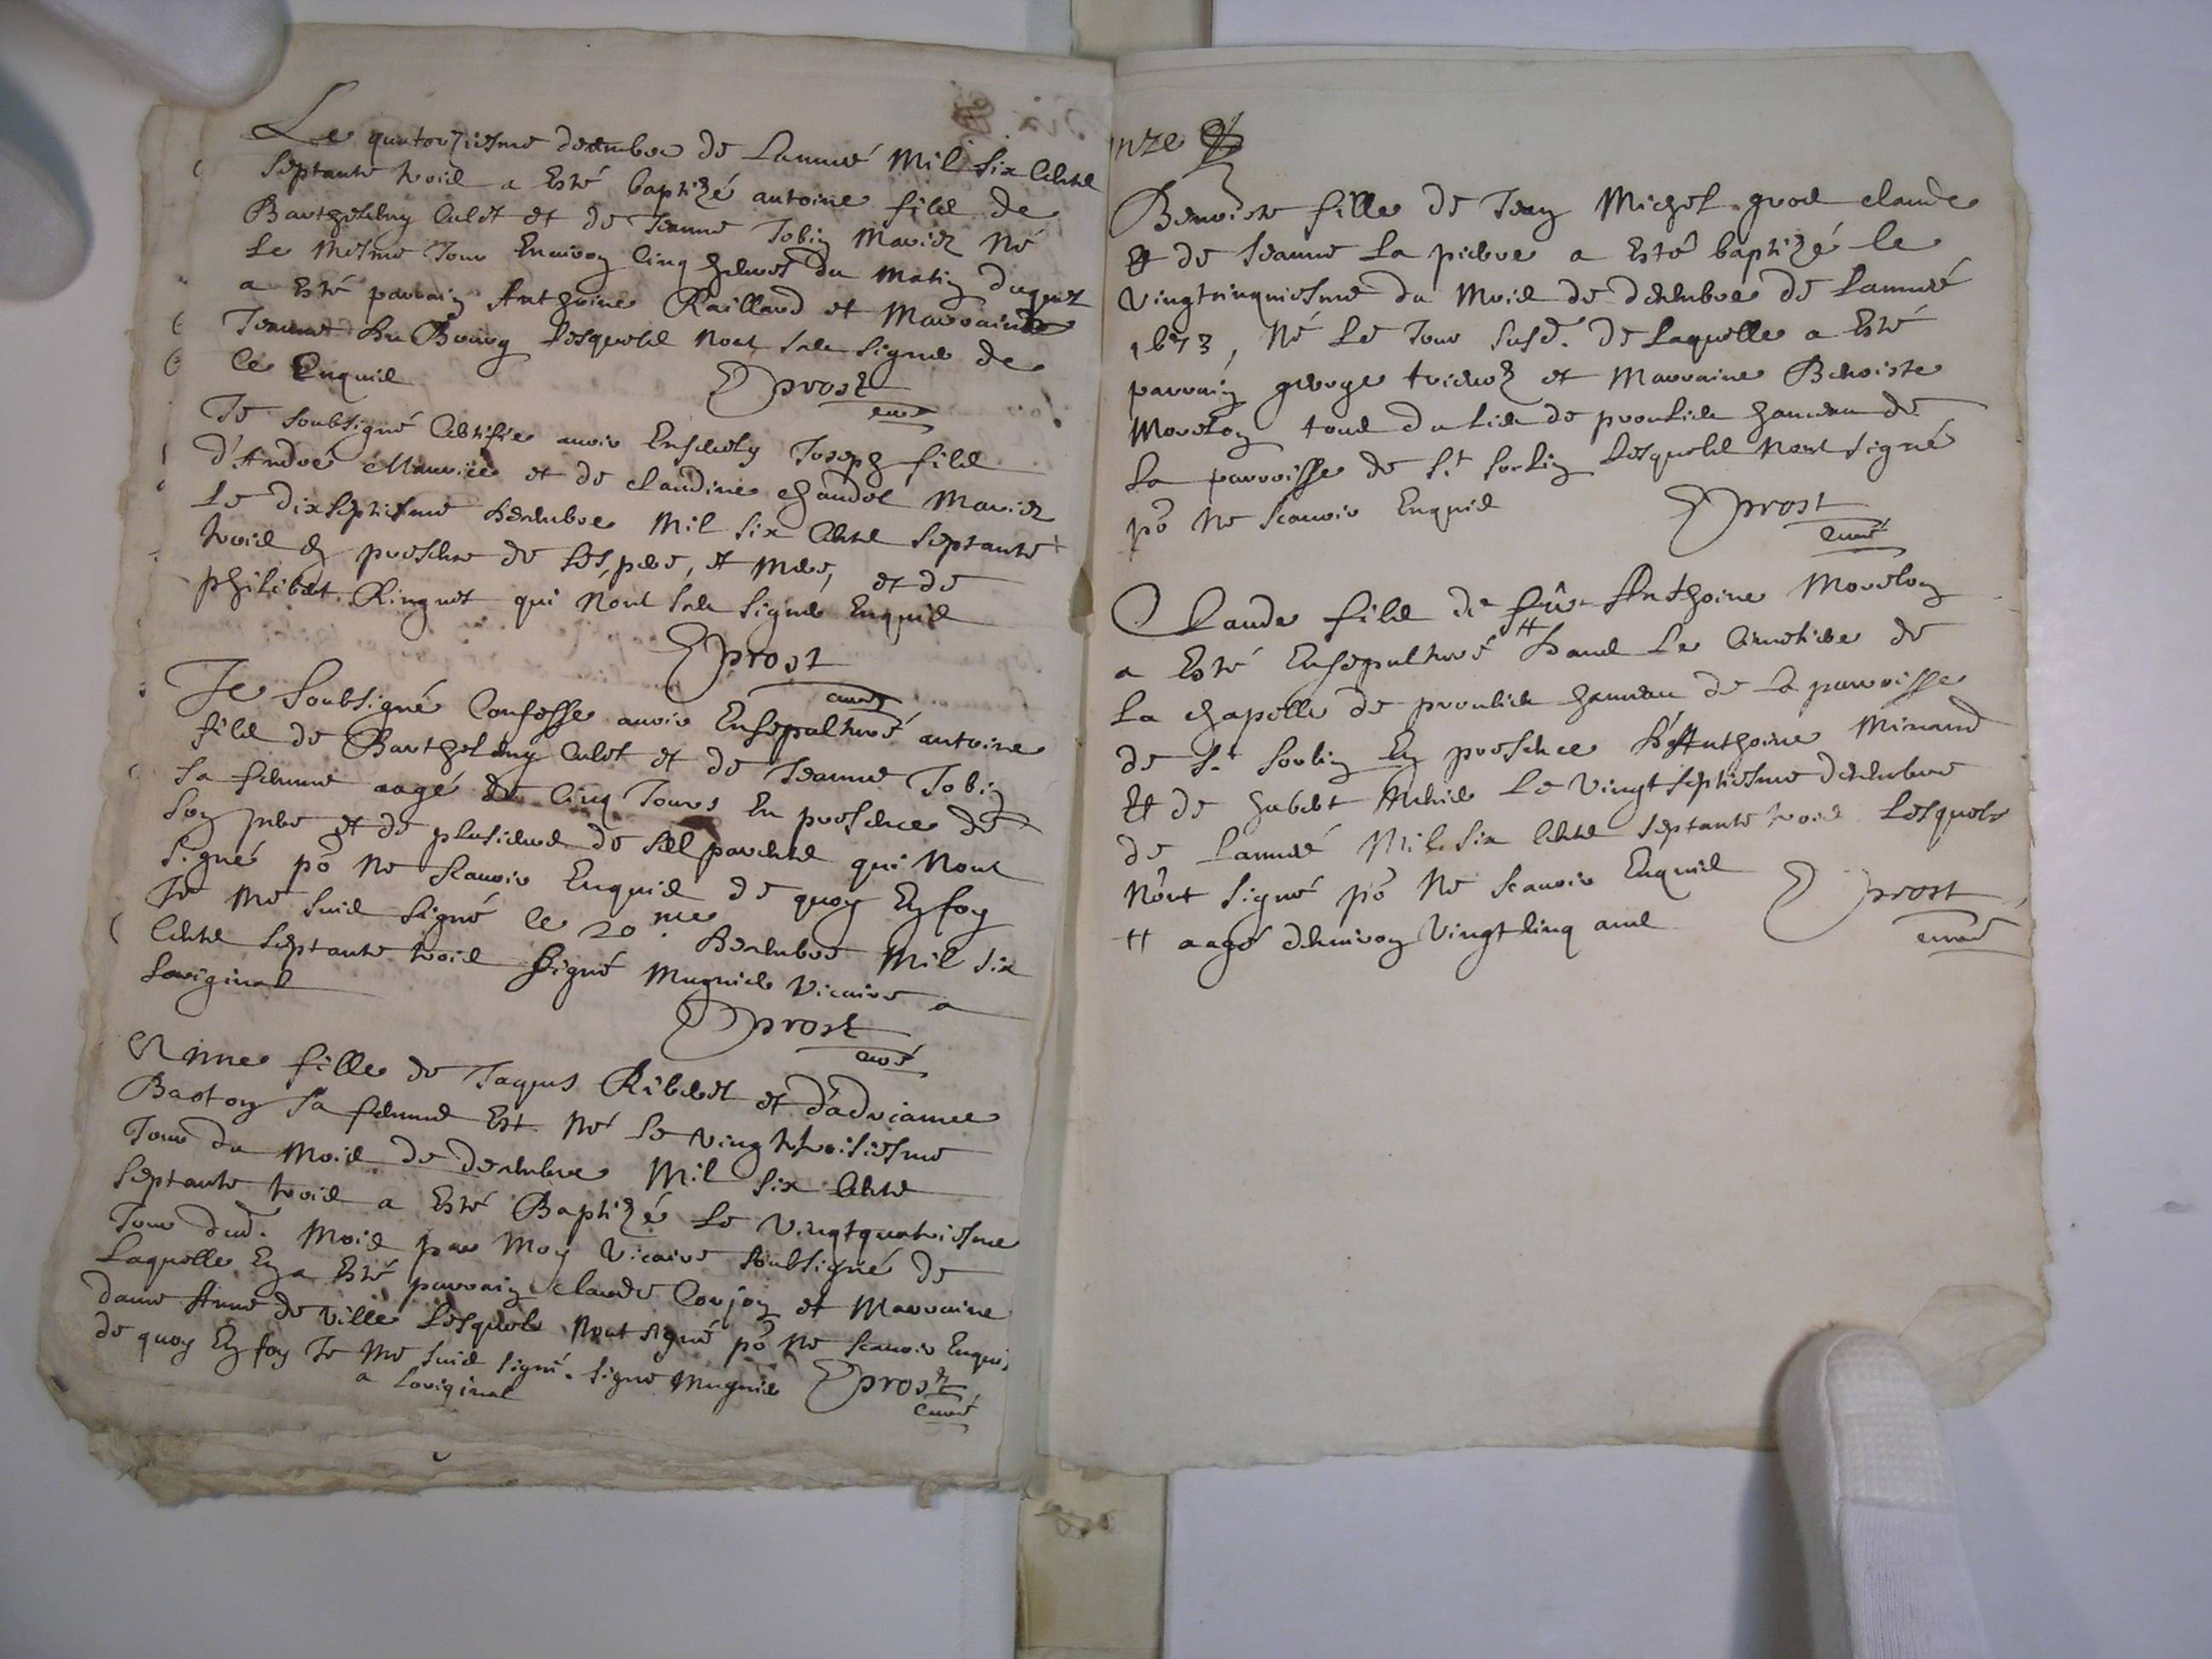 Le quatorziesme decembre de Lannee Mil six Cents
septante trois a Esté baptizé antoine fils de
Barthelemy Culet et de Jeanne Jobin Mariez Né
le mesme Jour Environ Cinq heures du matin duquel
a Esté parrain Anthoine Railland et Marraine
Jeanne du Bourg lesquels nont sceu signer de
ce Enquis
Prost
curé
Je soubsigné Certifie avoir Ensevely Joseph fils
d'André Maurice et de Claudine chandel Mariez
Le dixseptiesme decembre Mil six Cents septante
trois en presence de ses pere, et mere, et de
philibert Ringuet qui nont sceu signer Enquis
Prost
curé
Je soubsigné Confesse avoir Ensepulturé antoine
fils de Barthelemy Culet et de Jeanne Jobin
sa femme aagé de Cinq Jours En presence de
son pere et de plusieurs de ses parents qui nont
signé po ne scavoir Enquis de quoy En foy
Je me suis signé le 20.me decembre Mil six
Cents septante trois signé Mugnier Vicaire a
Loriginal
Prost
curé
Anne fille de Jaques Riberet et d'adrianne
Baston sa femme Est Né le vingttroisiesme
Jour du Mois de decembre Mil six Cents
septante trois a Esté Baptizé le vingtquatriesme
Jour dud. Mois par Moy Vicaire soubsigné de
Laquelle En a Esté parrain Claude Conjon et Marraine
dame Anne de ville lesquels nont signé po ne scavoir Enquis
de quoy En foy Je me suis signé. signé Mugnier
a Loriginal
Prost
curé
nze
Benoiste fille de Jean Michel gros claude
Et de Jeanne La pierre a Esté baptizé le
vingtcinquiesme du Mois de decembre de Lannée
1673, Né Le Jour susd. de Laquelle a Esté
parrain george trichoz et Marraine Benoiste
Morelon tous du lieu de proulieu hameau de
La parroisse de S.t Sorlin Lesquels nont signé
po ne scavoir Enquis
Prost
curé
Claude fils de fût Anthoine Morelon
a Esté Ensepulturé ++ dans Le Cimetiere de
La chapelle de proulieu hameau de la parroisse
de S.t Sorlin En presence d'Anthoine Minand
Et de hubert le vingtseptiesme decembre
de Lannée Mil six Cents septante trois Lesquels
nont signé po ne scavoir Enquis
++ aagé denviron vingtcinq ans
Prost
curé